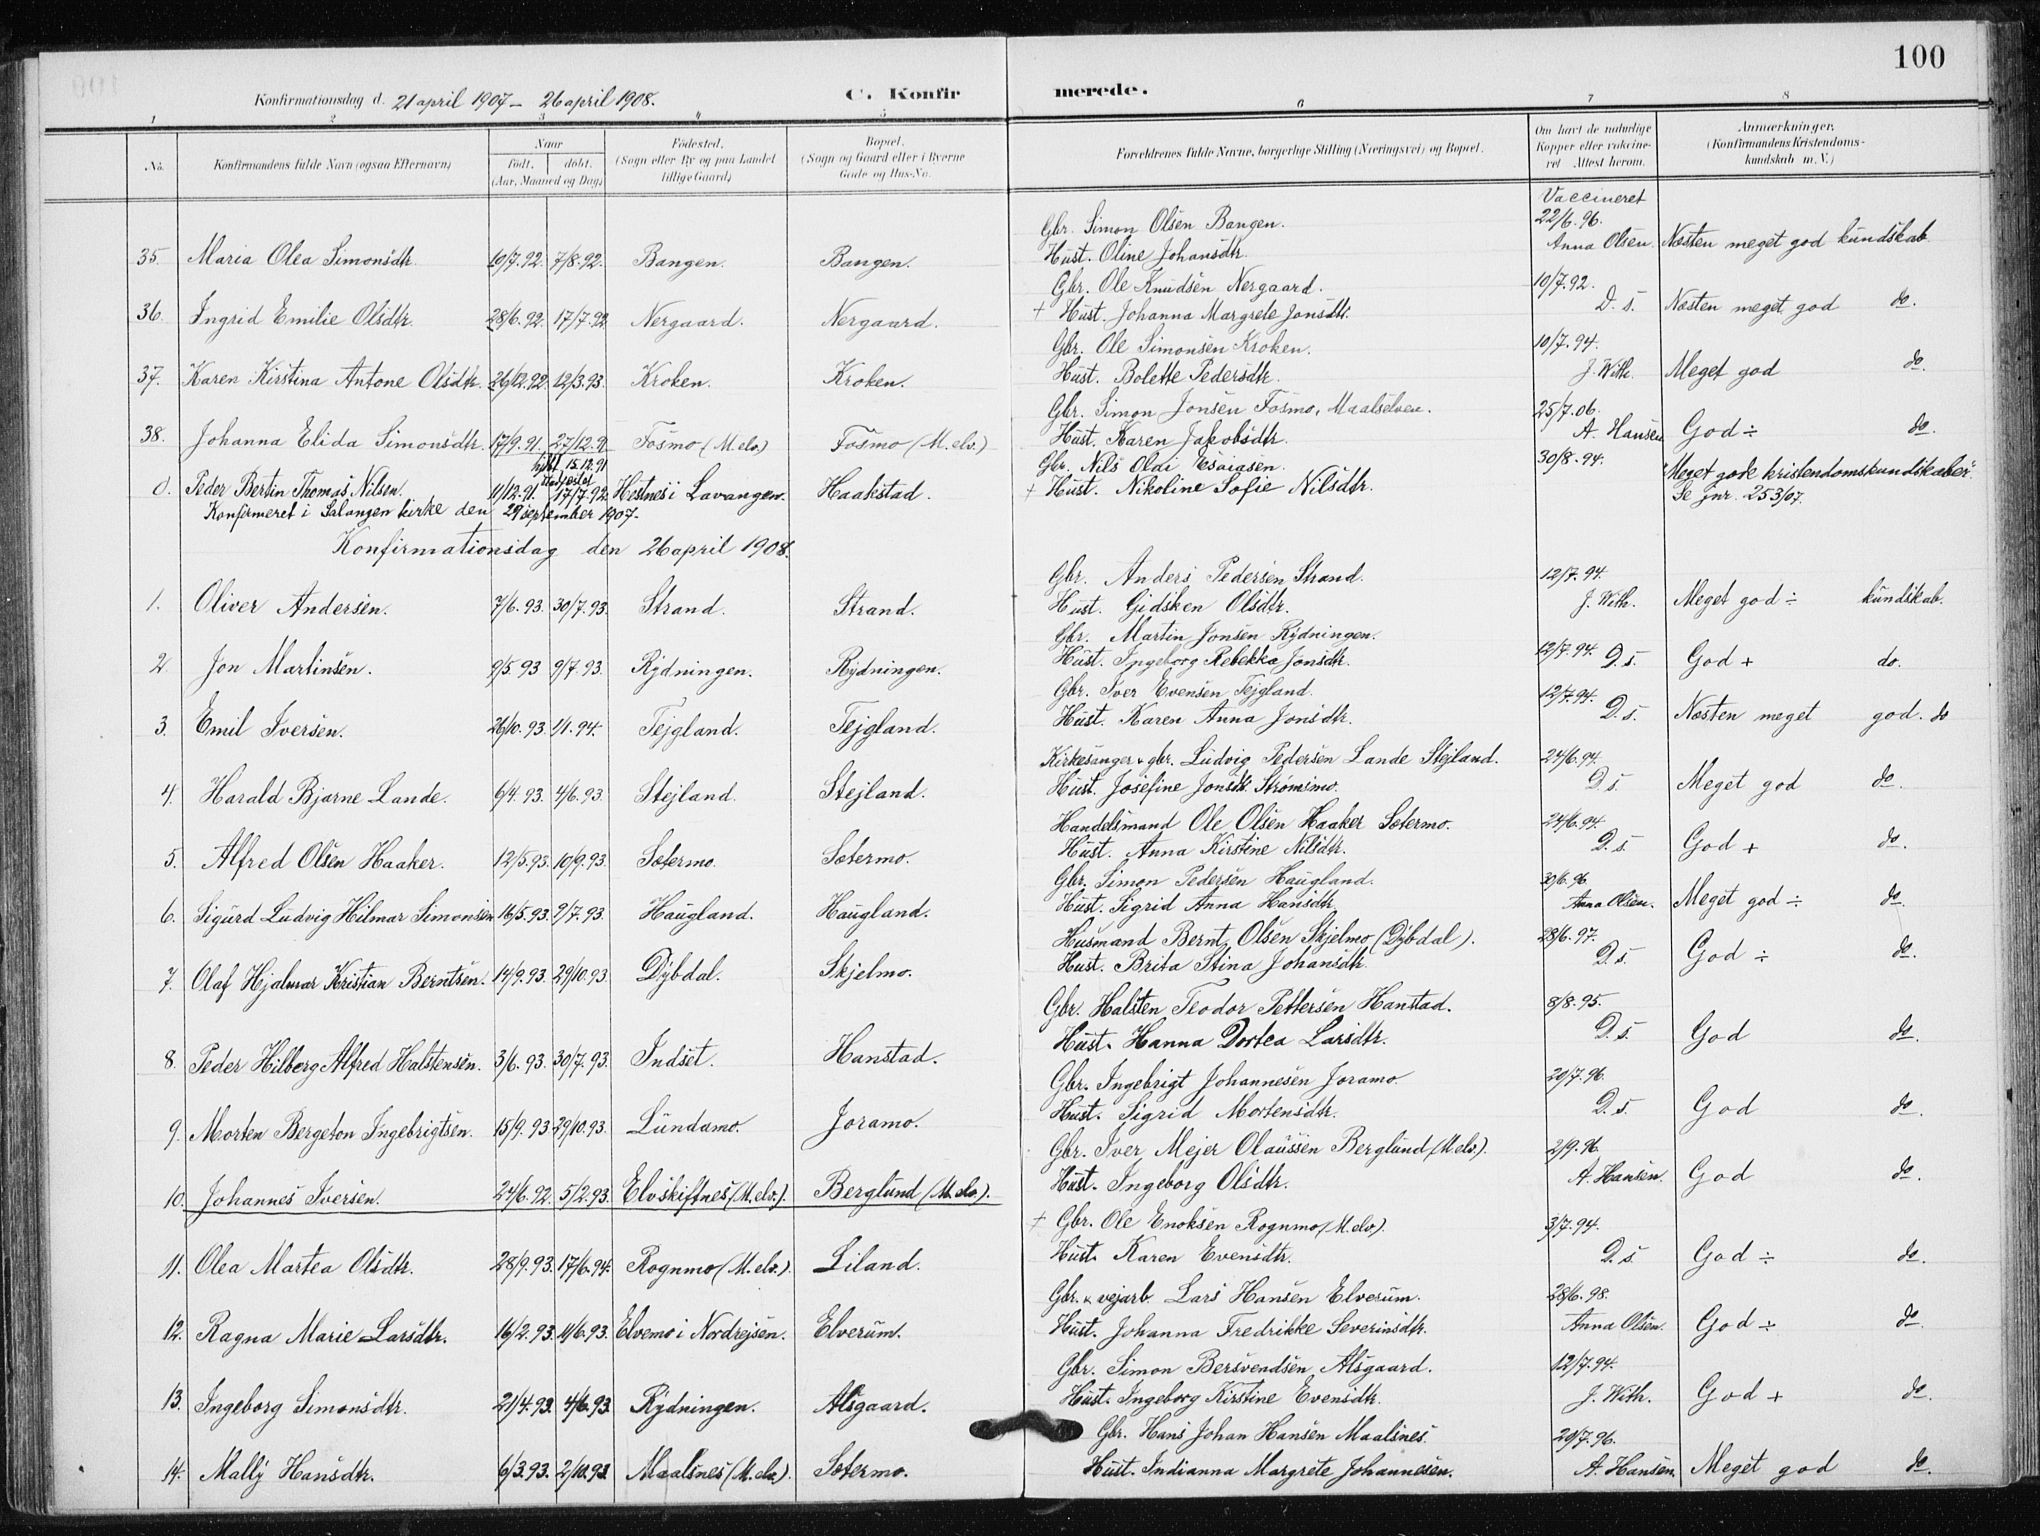 100
Konfirmationsdag d. 21 april 1907 – 26 april 1908. C. Konfir merede.
1 2 3 4 5 6 7 8
No. Konfirmandens fulde Navn (ogsaa Efternavn) Naar født, døbt. (Aar, Maaned og Dag) Fødested. (Sogn eller By og paa Landet tillige Gaard) Bopæl. (Sogn og Gaard eller i Byerne Gade og Hus-No. Forældrenes fulde Navne, borgerlige Stilling (Næringsvei) og Bopæl. Om havt de naturlige Kopper eller vakcineret Attest herom. Anmærkninger. (Konfirmandens Kristendomskundskab m. V.)
Vaccineret
Gbr. Simon Olsen Bangen. 22/6.96.
35. Maria Olea Simonsdtr. 10/7.92. 7/8.92. Bangen. Bangen. Hust. Oline Johansdtr. Anna Olsen. Næsten meget god kundskab
Gbr. Ole Knudsen Nergaard. 10/7.92.
36. Ingrid Emilie Olsdtr. 28/6.92. 17/7.92 Nergaard. Nergaard. + Hust. Johanna Margrete Jonsdtr. D. s. Næsten meget god do.
Gbr. Ole Simonsen Kroken. 10/7.94.
37. Karen Kirstina Antone Olsdtr. 26/12.92 12/3.93. Kroken. Kroken. Hust. Bolette Pedersdtr. J. With. Meget god do.
Gbr. Simon Jonsen Fosmo, Maalselven. 25/7.06.
38. Johanna Elida Simonsdtr. 17/9.91. 27/12.91 Fosmo (M elv.) Fosmo (M. elv.) Hust. Karen Jakobsdtr. A. Hansen God ÷ do.
hjdbt 15.12.91 Gbr. Nils Oldi Esaiasen. 30/8.94. "Meget gode kristendomskundskaber"
0. Peder Bertin Thomas Nilsen. 11/12.91. 17/7.92. Hestnes i Lavangen. Haakstad. + Hust. Nikoline Sofie Nilsdtr. Se jnr. 253/07.
Konfirmeret i Salangen kirke den 29 september 1907.
Konfirmationsdag den 26 april 1908.
Gbr. Anders Pedersen Strand. 12/7.94.
1. Oliver Andersen. 7/6.93. 30/7.93. Strand. Strand. Hust. Gidsken Olsdtr. J. With. Meget god ÷ kundskab.
Gbr. Martin Jonsen Rydningen.
2. Jon Martinsen. 9/5.93 9/7.93. Rydningen. Rydningen. Hust. Ingeborg Rebekka Jonsdtr. 12/7.94. D. s. God + do.
Gbr. Iver Evensen Tejgland.
3. Emil Iversen. 26/10.93. 1/1.94. Tejgland. Tejgland. Hust. Karen Anna Jonsdtr. 12/7.94. D. s. Næsten meget god. do
Kirkesanger & gbr. Ludvig Pedersen Lande Stejland. 24/6.94.
4. Harald Bjarne Lande. 6/4.93. 4/6.93. Stejland. Stejland. Hust. Josefine Jonsdtr. Strømsmo. D. s. Meget god do.
Handelsmand Ole Olsen Haaker Sætermo. 24/6.94.
5. Alfred Olsen Haaker. 12/5.93. 10/9.93. Sætermo. Sætermo. Hust. Anna Kirstine Nilsdtr. D. s. God + do.
Gbr. Simon Pedersen Haugland. 30/6.96.
6. Sigurd Ludvig Hilmar Simonsen 16/5.93. 9/7.93. Haugland. Haugland. Hust. Sigrid Anna Hansdtr. Anna Olsen. Meget god ÷ do.
Husmand Bernt Olsen Skjelmo (Dybdal). 28/6.97.
7. Olaf Hjalmar Kristian Berntsen. 14/9.93. 29/10.93. Dybdal. Skjelmo. Hust. Brita Stina Johansdtr. D. s. God ÷ do.
Gbr. Halsten Teodor Pettersen Hanstad. 8/8.95.
8. Peder Hilberg Alfred Halstensen. 3/6.93. 30/7.93. Indset. Hanstad. Hust. Hanna Dortea Larsdtr. D. s. God do.
Gbr. Ingebrigt Johannesen Joramo. 20/7.96.
9. Morten Bergeton Ingebrigtsen. 15/9.93. 29/10.93. Lundamo. Joramo. Hust. Sigrid Mortensdtr. D. s. God do.
Gbr. Iver Mejer Olaussen Berglund (M. elv.). 2/9.96.
10. Johannes Iversen. 24/6.92. 5/2.93. Elvskiftnes (M. elv.). Berglund (M. elv.). Hust. Ingeborg Olsdtr. A. Hansen. God do.
+ Gbr. Ole Enoksen Rognmo (M. elv.). 3/7.94.
11. Olea Martea Olsdtr. 28/9.93. 17/6.94. Rognmo (M. elv.). Liland. Hust. Karen Evensdtr. D. s. God ÷ do.
Gbr. & vejarb. Lars Hansen Elverum. 28/6.98.
12. Ragna Marie Larsdtr. 16/2.93. 11/6.93. Elvemo i Nordrejsen. Elverum. Hust. Johanna Fredrikke Severinsdtr. Anna Olsen. God ÷ do.
Gbr. Simon Bersvendsen Alsgaard. 12/7.94.
13. Ingeborg Simonsdtr. 21/4.93. 4/6.93. Rydningen. Alsgaard. Hust. Ingeborg Kirstine Evensdtr. J. With. God + do.
Gbr. Hans Johan Hansen Maalsnes. 20/7.96.
14. Mally Hansdtr. 6/3.93. 2/10.93. Maalsnes (M. elv.). Sætermo. Hust. Indianna Margrete Johannesen. A. Hansen. Meget god do.